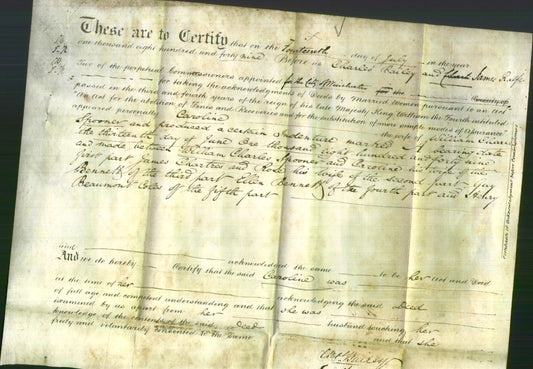 These are to Certify that on the Fourteenth day of July in the year
one thousand eight hundred and forty nine Before us Charles and Edward James
Two of the perpetual Commissioners appointed for the City of Manchester
for taking the acknowledgments of Deeds by Married Women pursuant to an Act
passed in the third and fourth years of the reign of his late Majesty King William the Fourth intituled
"An Act for the abolition of Fines and Recoveries and for the substitution of more simple modes of Assurance"
appeared personally Caroline the wife of William Charles
Spooner and produced a certain Indenture marked bearing date
the thirteenth of June One thousand eight hundred and forty nine
and made between William Charles Spooner and Caroline his wife of the
first part James Chartres and Rose his wife of the second part Guy
Bennett of the third part Ellen Bennett of the fourth part and Henry
Beaumont Coles of the fifth part
and acknowledged the same to be her act and deed
And we do hereby Certify that the said Caroline was
at the time of her acknowledging the said deed
of full age and competent understanding and that she was
examined by us apart from her husband touching her
knowledge of the contents of the said deed and that she
freely and voluntarily consented to the same